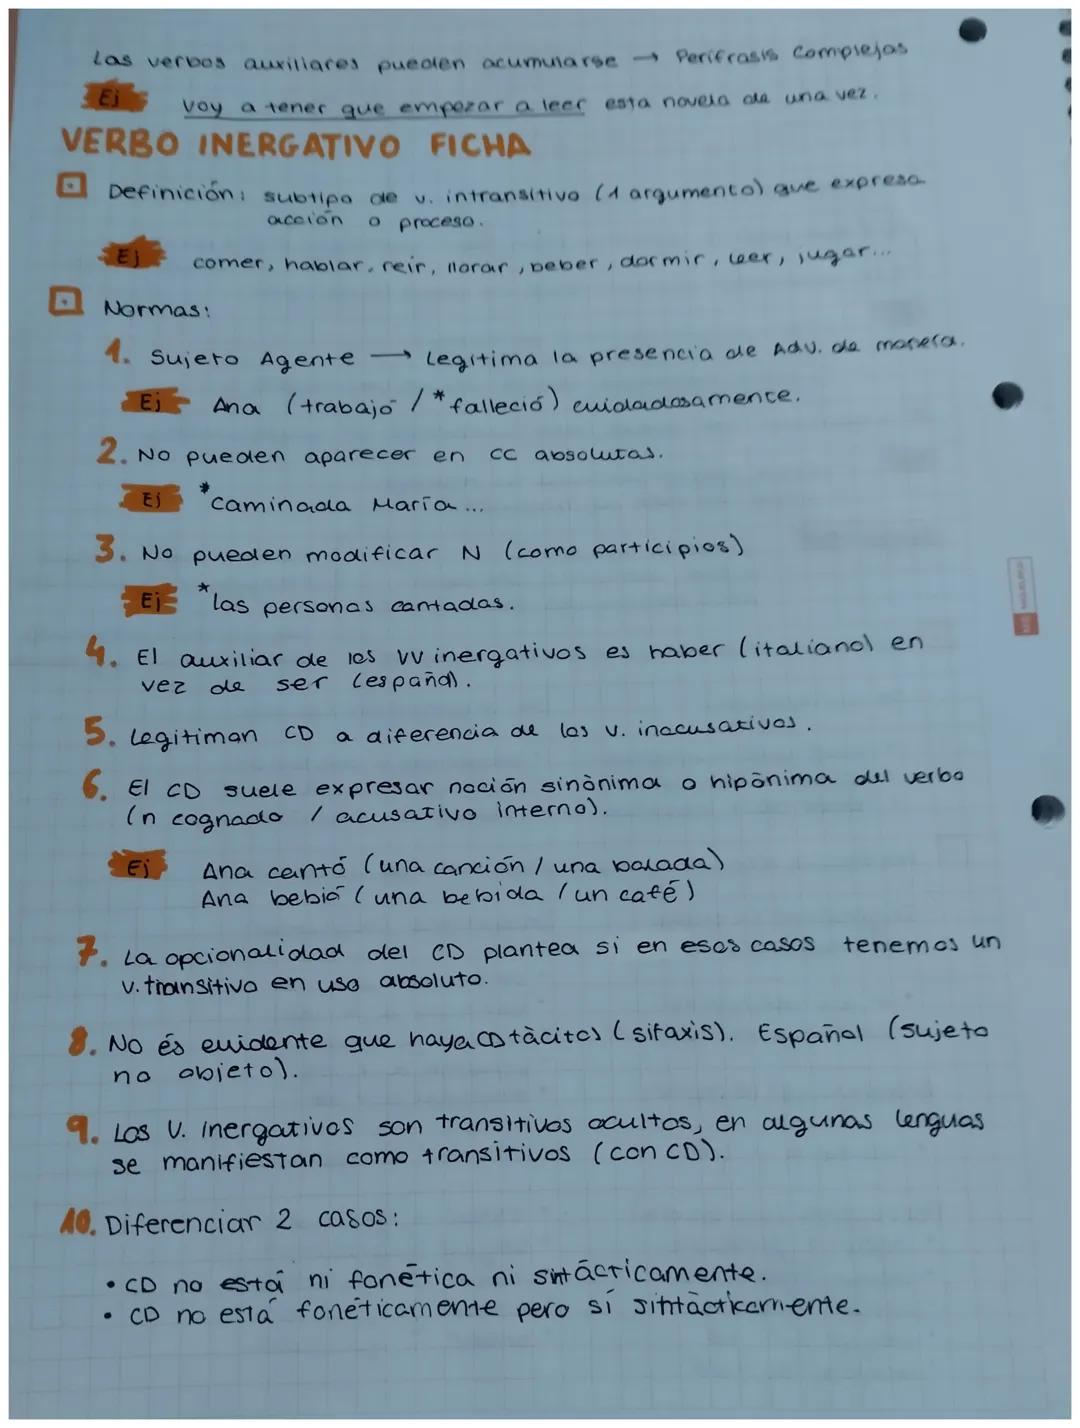 Los verbos auxiliares pueden acumularse → Perífrasis Complejas
Ej Voy a tener que empezar a leer esta novela de una vez.
VERBO INERGATIVO FICHA
Definición: subtipo de v. intransitivo (1 argumento) que expresa
acción o proceso.
Ej comer, hablar, reír, llorar, beber, dormir, leer, jugar...
Normas:
1. Sujeto Agente → Legitima la presencia de Adv. de manera.
Ej Ana (trabajó / *falleció) cuidadosamente.
2. No pueden aparecer en CC absolutas.
Ej *caminada María...
3. No pueden modificar N (como participios)
Ej *las personas cantadas.
4. El auxiliar de los VV inergativos es haber (italiano) en
vez de ser (español).
5. Legitiman CD a diferencia de los v. inacusativos.
6. El CD suele expresar noción sinònima o hipònima del verbo
(n cognado / acusativo interno).
Ej Ana cantó (una canción / una balada)
Ana bebió (una bebida / un café)
7. La opcionalidad del CD plantea si en esos casos tenemos un
v. transitivo en uso absoluto.
8. No és evidente que haya CD tàcitos (sitaxis). Español (sujeto
no objeto).
9. Los V. inergativos son transitivos ocultos, en algunas lenguas
se manifiestan como transitivos (con CD).
10. Diferenciar 2 casos:
• CD no está ni fonética ni sintácticamente.
• CD no está fonéticamente pero sí sintàcticamente.